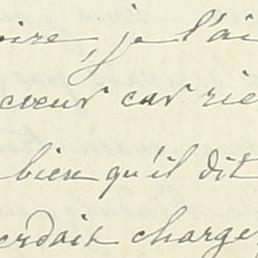 oire, je l'ai
coeur car rie
bien qu'il dit
erdait charge